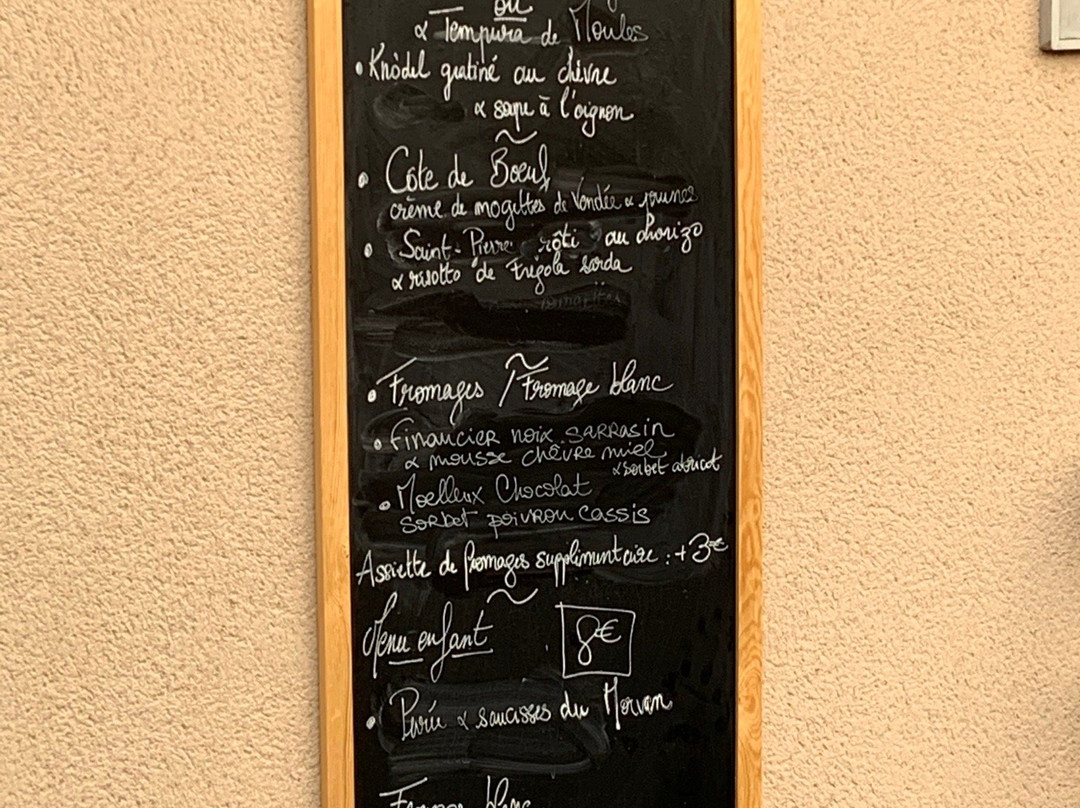 ou
& Tempura de Moules
• Knödel gratiné au chèvre
& soupe à l'oignon
~
• Côte de Boeuf
crème de mogettes de Vendée &
• Saint-Pierre rôti au chorizo
& risotto de Frégola sarda
~
• Fromages / Fromage blanc
• Financier noix.sarrasin
& mousse chèvre miel
& sorbet abricot
• Moelleux Chocolat
sorbet poivron cassis
Assiette de fromages supplémentaire : +3€
~
Menu enfant 8€
• Purée & saucisses du Morvan
blanc